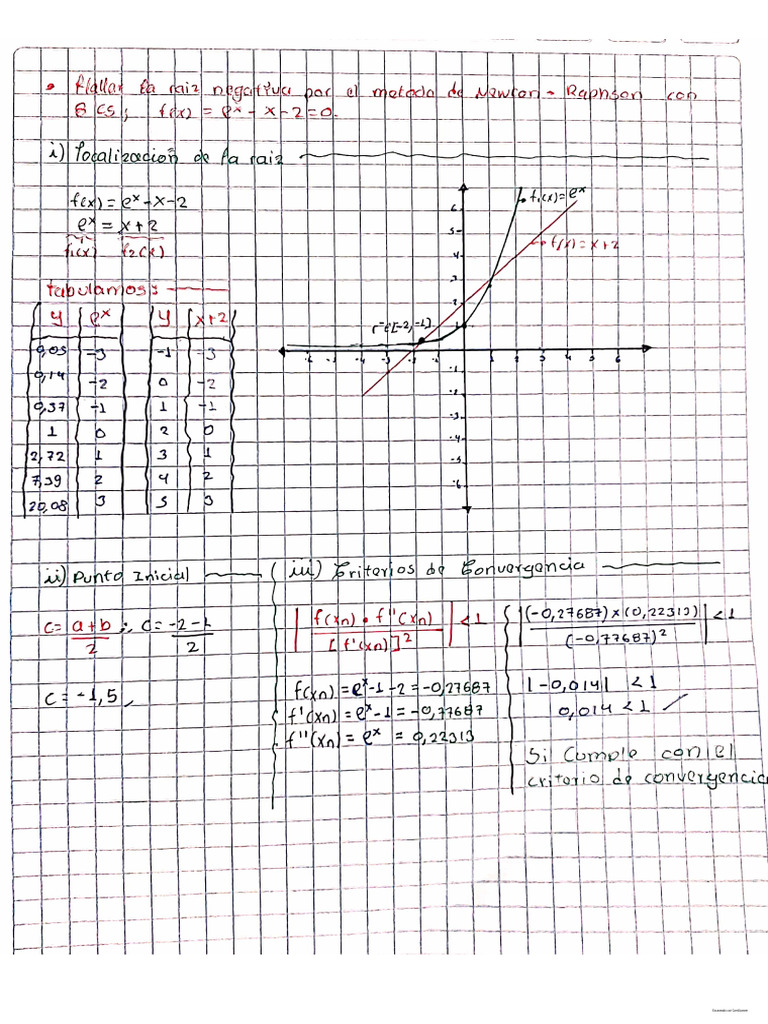 • Hallar la raiz negativa por el metodo de Newton - Raphson con
6 CS; f(x) = eˣ - x - 2 = 0.
i) Localización de la raiz
f(x) = eˣ - x - 2
eˣ = x + 2
f₁(x) f₂(x)
tabulamos:
y eˣ y x+2
0,05 -3 -1 -3
0,14 -2 0 -2
0,37 -1 1 -1
1 0 2 0
2,72 1 3 1
7,39 2 4 2
20,08 3 5 3
f₁(x) = eˣ
f₂(x) = x + 2
r⁻∈[-2,-1]
6
5
4
3
2
1
-6 -5 -4 -3 -2 -1 1 2 3 4 5 6
-1
-2
-3
-4
-5
-6
ii) Punto Inicial
c = a+b / 2 ; c = -2-1 / 2
c = -1,5
iii) Criterios de Convergencia
| f(xn) • f''(xn) / [f'(xn)]² | < 1
f(xn) = eˣ-1-2 = -0,27687
f'(xn) = eˣ-1 = -0,77687
f''(xn) = eˣ = 0,22313
| (-0,27687) x (0,22313) / (-0,77687)² | < 1
|-0,014| < 1
0,014 < 1
Si Cumple con el
criterio de convergencia